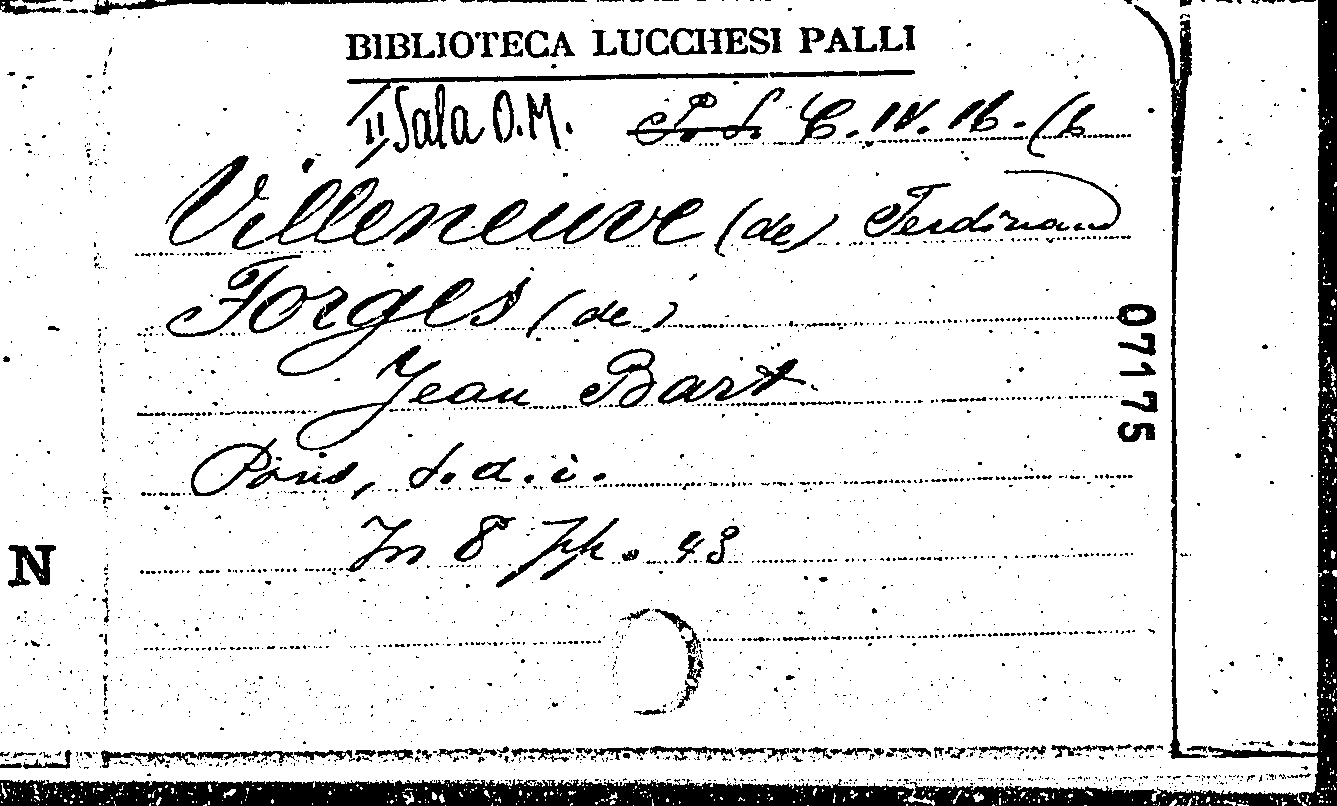 BIBLIOTECA LUCCHESI PALLI
II Sala O.M. C. IV. 16.
Villeneuve (de) Ferdinand
Forges (de)
Jean Bart
Paris, s.d.i.
In 8 pp. 43
07175
N